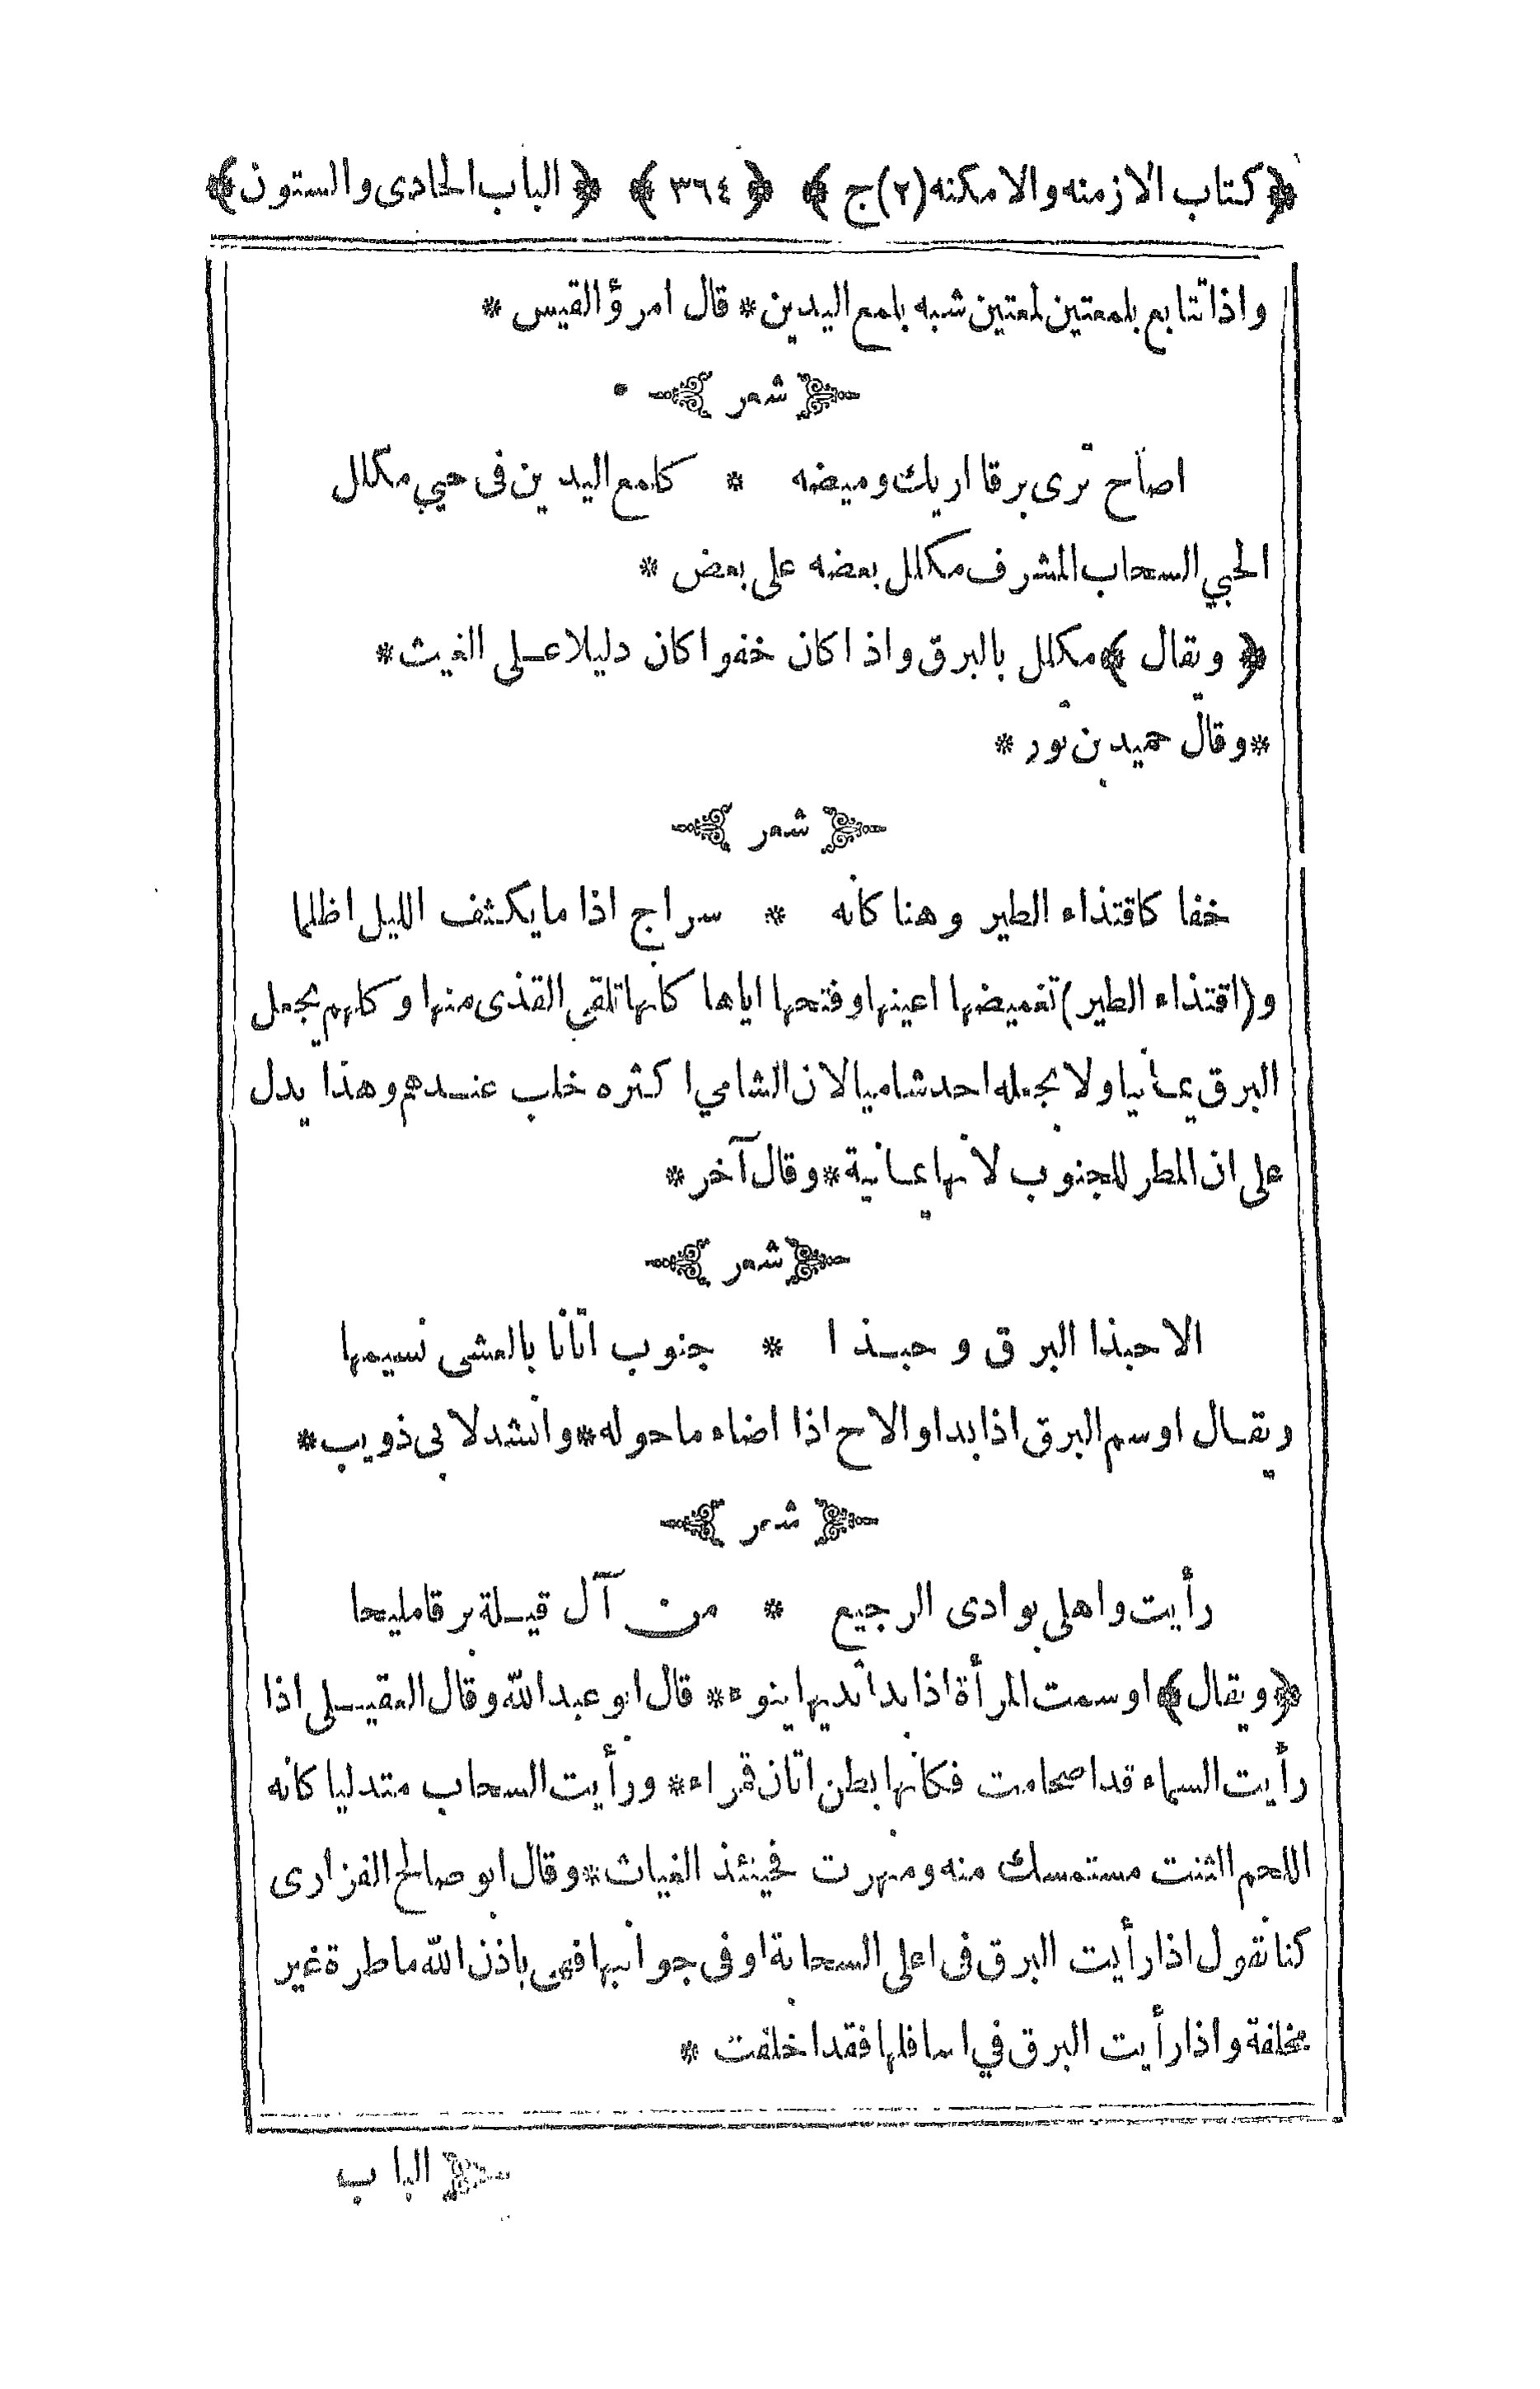 ﴿كتاب الازمنه والامكنه (٢) ج﴾ ﴿٣٦٤﴾ ﴿الباب الحادى والستون﴾
واذا تتابع بلمعتين لمعتين شبه بلمع اليدين * قال امرؤ القيس *
شعر
اصاح ترى برقا اريك وميضه * كلمع اليدين فى حبي مكلل
الحبي السحاب المشرف مكلل بعضه على بعض *
﴿ ويقال ﴾ مكلل بالبرق واذا كان خفوا كان دليلا على الغيث *
* وقال حميد بن ثور *
شعر
خفا كاقتذاء الطير وهنا كانه * سراج اذا ما يكشف الليل اظلما
و(اقتذاء الطير) تغميضها اعينها وفتحها اياها كانها تلقي القذى منها وكلهم يجعل
البرق يمانيا ولا يجعله احد شاميا لان الشامي اكثره خلب عندهم وهذا يدل
على ان المطر للجنوب لانها يمانية * وقال آخر *
شعر
الا حبذا البرق و حبذا * جنوب اتانا بالعشى نسيمها
ويقال اوسم البرق اذا بدا والاح اذا اضاء ما حوله * وانشد لابى ذويب *
شعر
رأيت واهلى بوادى الرجيع * من آل قيلة برقا مليحا
﴿ ويقال ﴾ اوسمت المرأة اذا بدا ثدييها ينوء * قال ابو عبد الله وقال العقيلى اذا
رأيت السماء قد اصحامت فكانها بطن اتان قمراء * ورأيت السحاب متدليا كانه
اللحم الثنت مستمسك منه ومنهرت فحينئذ الغياث * وقال ابو صالح الفزارى
كنا نقول اذا رأيت البرق فى اعلى السحابة او فى جوانبها فهى باذن الله ماطرة غير
مخلفة واذا رأيت البرق في اسافلها فقد اخلفت *
الباب